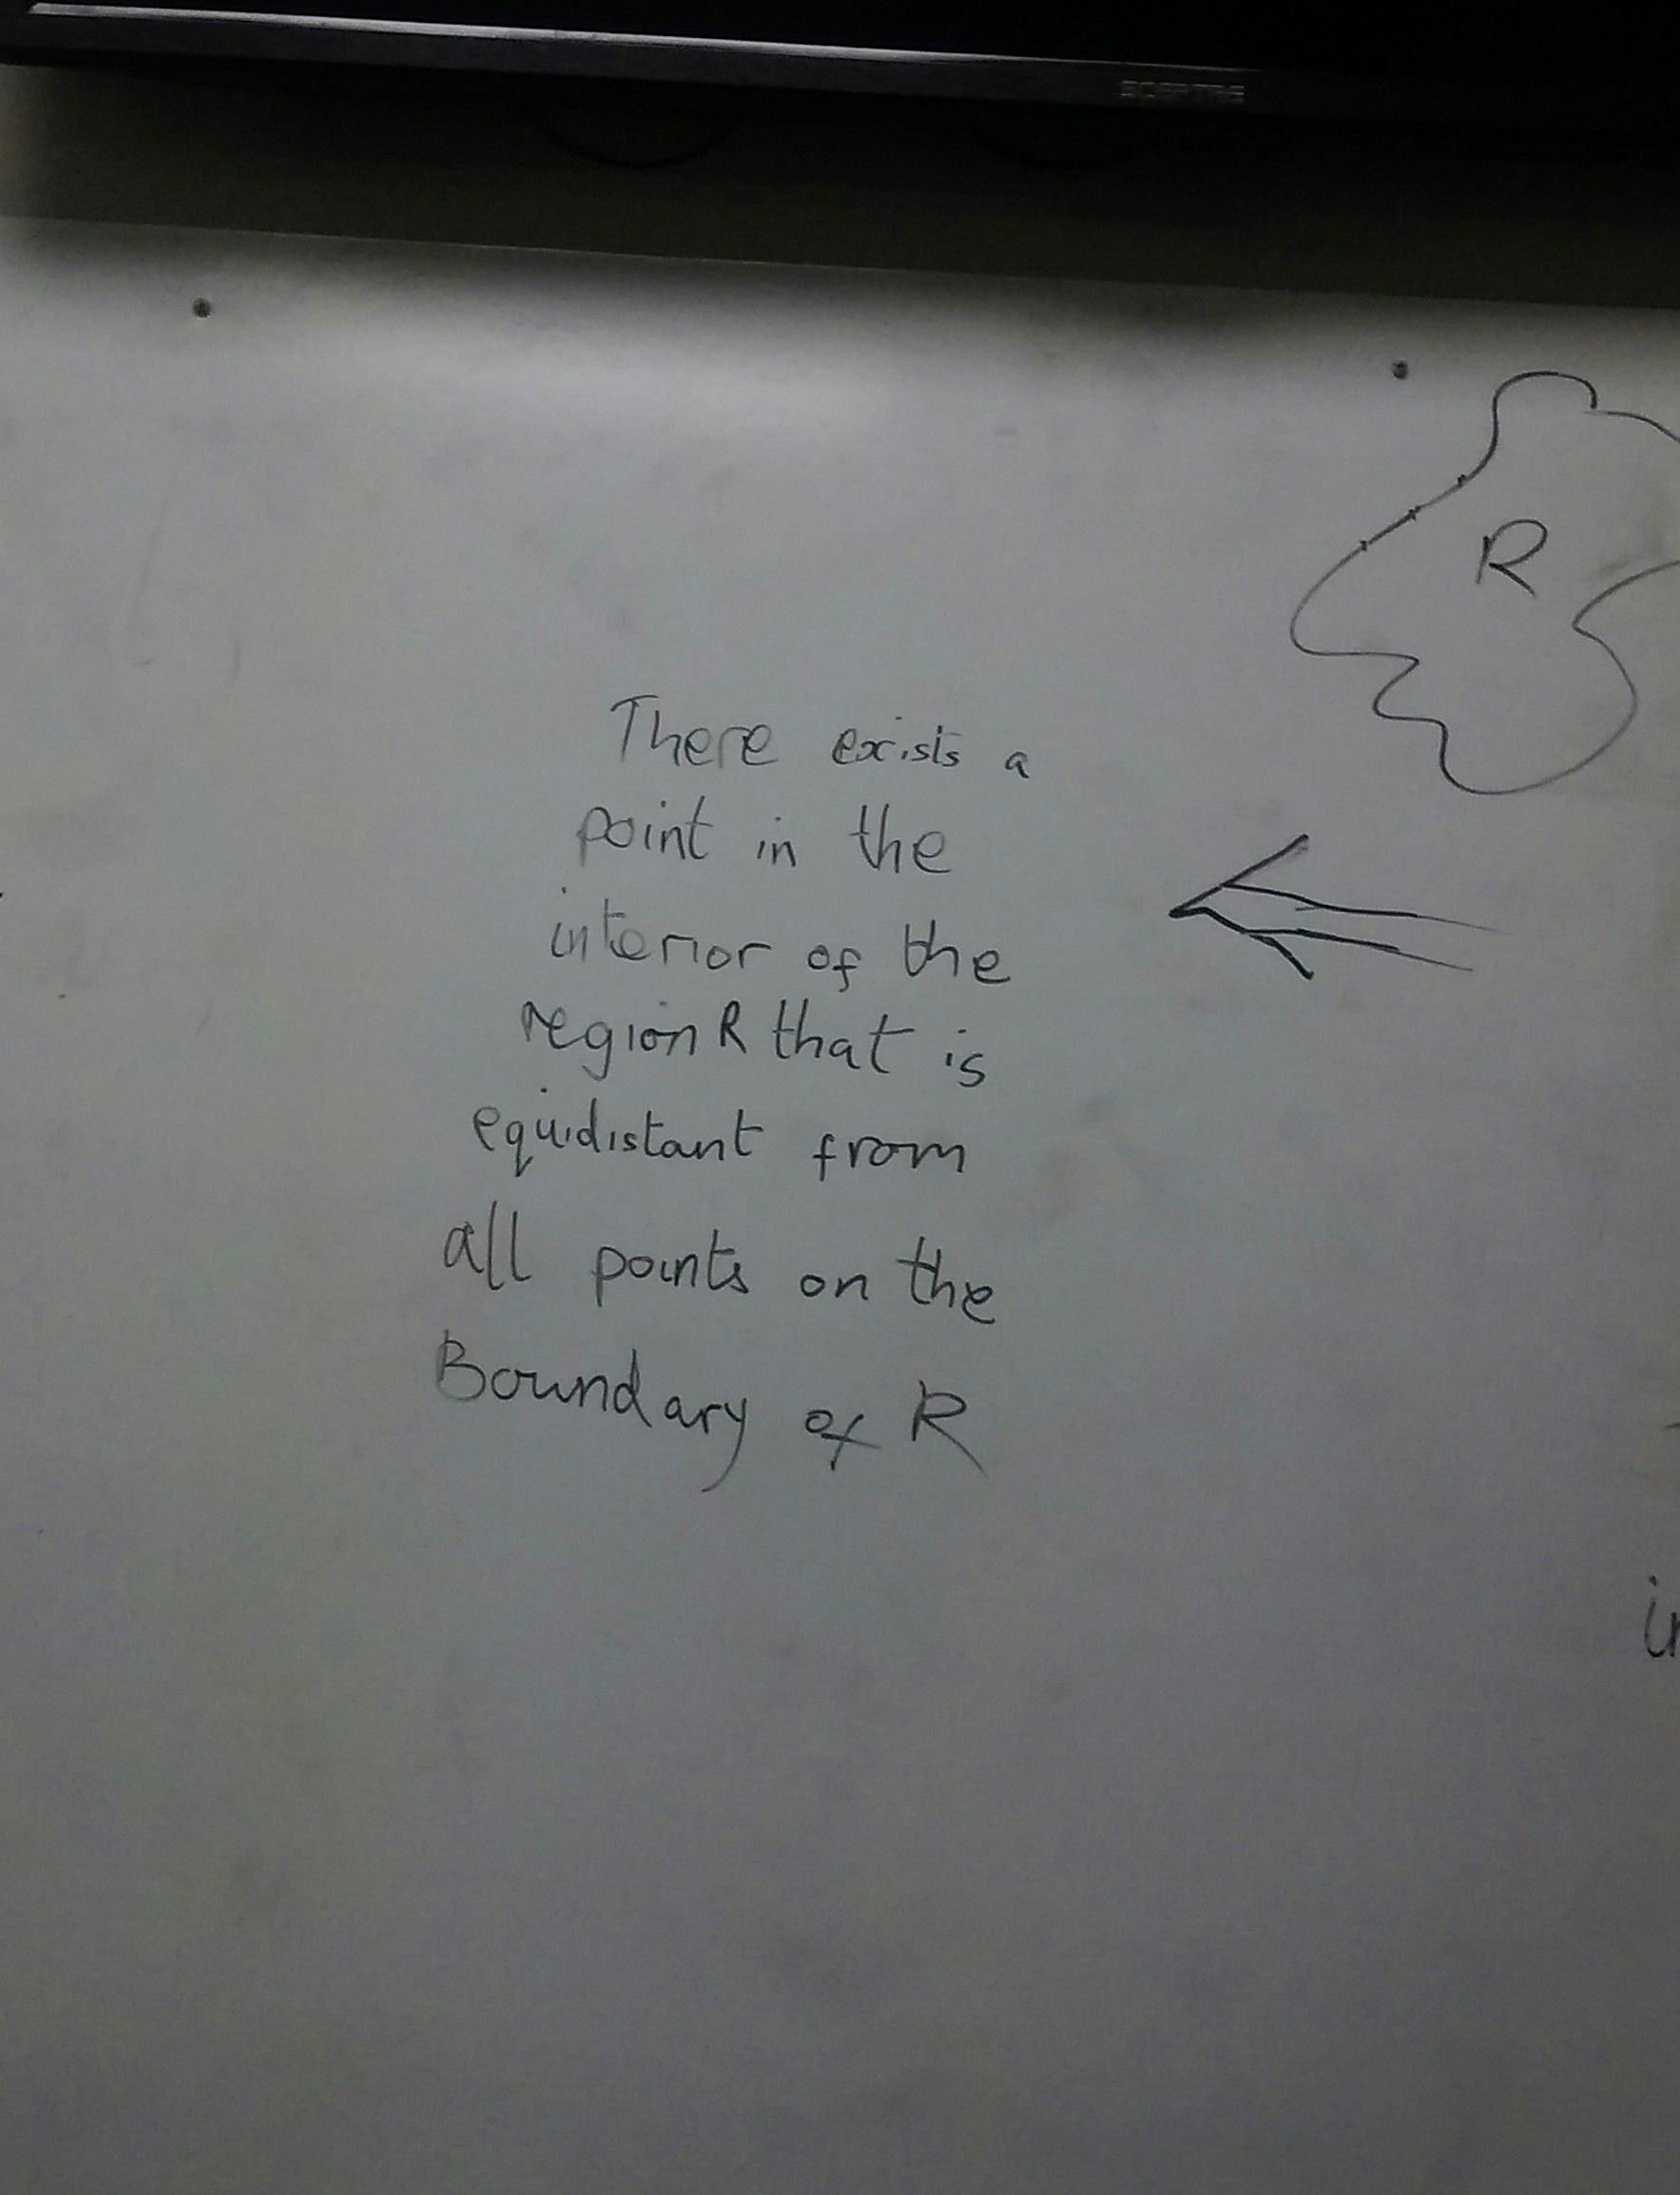 SCEPTRE
R
There exists a
point in the
interior of the
region R that is
equidistant from
all points on the
Boundary of R